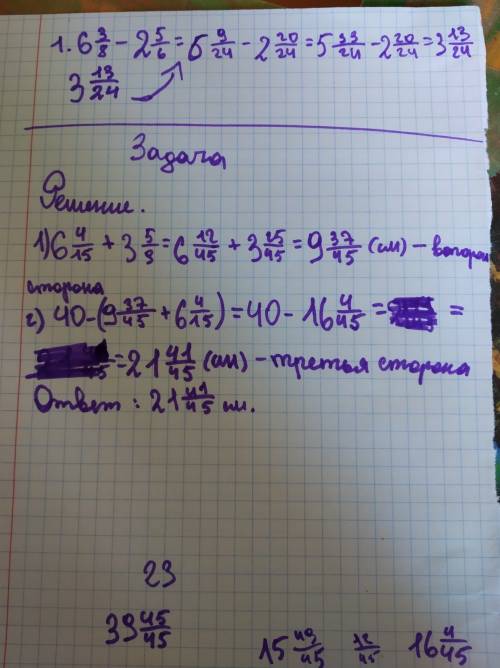 1. 6 3/8 - 2 5/6 = 6 9/24 - 2 20/24 = 5 33/24 - 2 20/24 = 3 13/24
3 13/24
Задача
Решение.
1) 6 4/15 + 3 5/9 = 6 12/45 + 3 25/45 = 9 37/45 (см) - вторая
сторона
2) 40 - (9 37/45 + 6 4/15) = 40 - 16 4/45 = =
= 21 41/45 (см) - третья сторона
Ответ : 21 41/45 см.
23
39 45/45
15 49/45 12/45 16 4/45